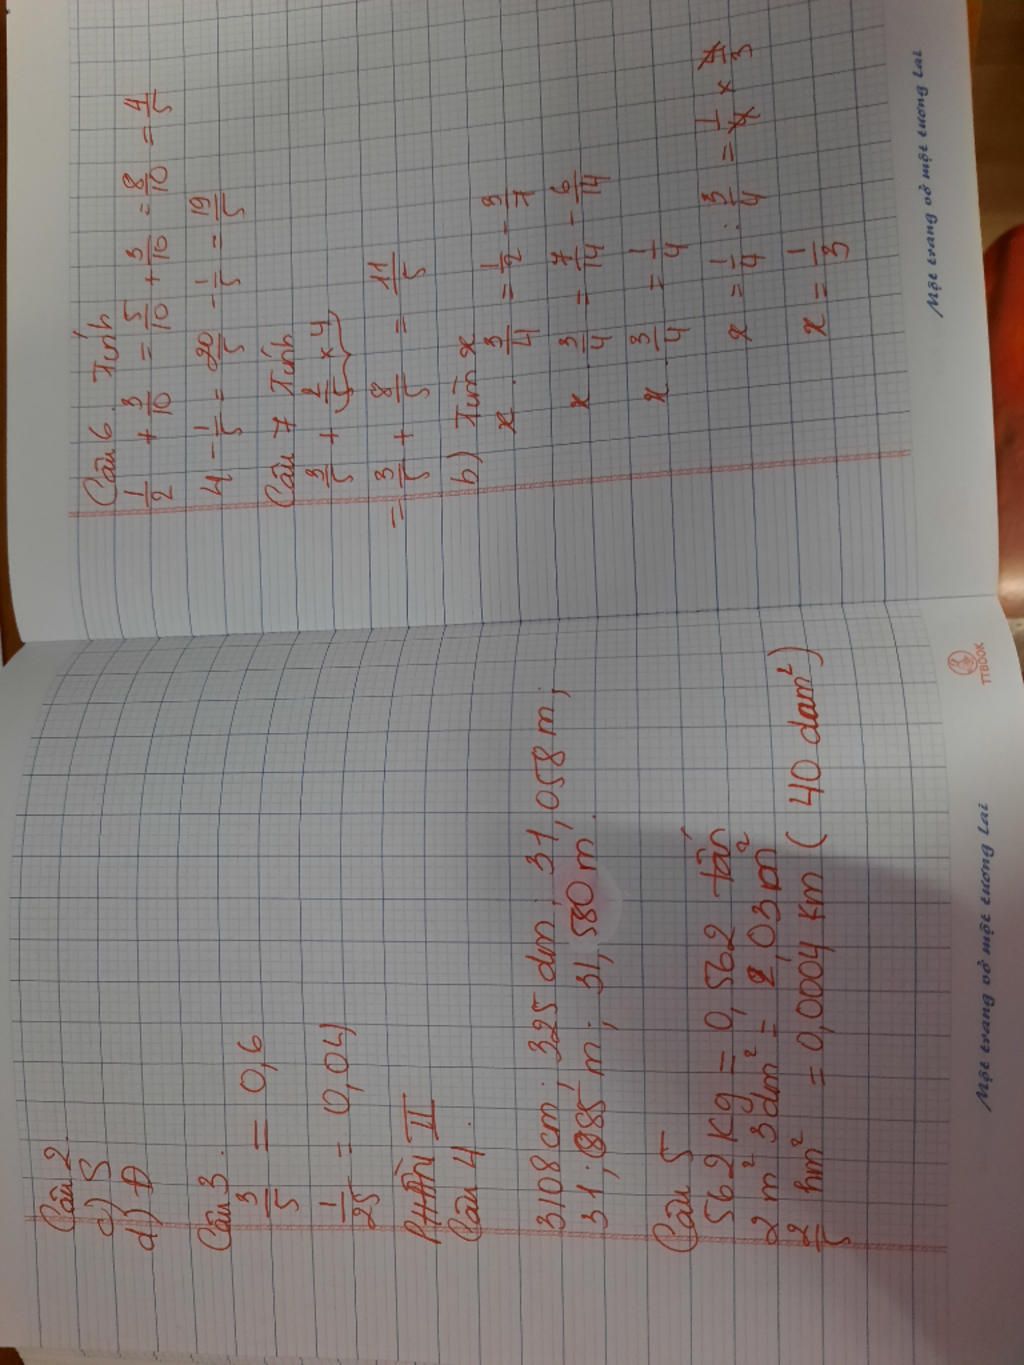 Câu 2.
c) S
d) Đ
Câu 3.
3/5 = 0,6
1/25 = 0,04
PHẦN II
Câu 4.
3108cm; 325 dm; 31,058 m;
m; 31,580 m.
Câu 5
562 kg = 0,562 tấn
2 m² 3dm² = 2,03 m²
2/5 hm² = 0,0004 km (40 dam²)
TTBOOK
Một trang vở một tương lai
Câu 6. Tính
1/2 + 3/10 = 5/10 + 3/10 = 8/10 = 4/5
4 - 1/5 = 20/5 - 1/5 = 19/5
Câu 7 Tính
3/5 + 2/5 × 4
= 3/5 + 8/5 = 11/5
b) Tìm x
x . 3/4 = 1/2 - 3/7
x . 3/4 = 7/14 - 6/14
x . 3/4 = 1/4
x = 1/4 : 3/4 = 1/4 × 4/3
x = 1/3
Một trang vở một tương lai